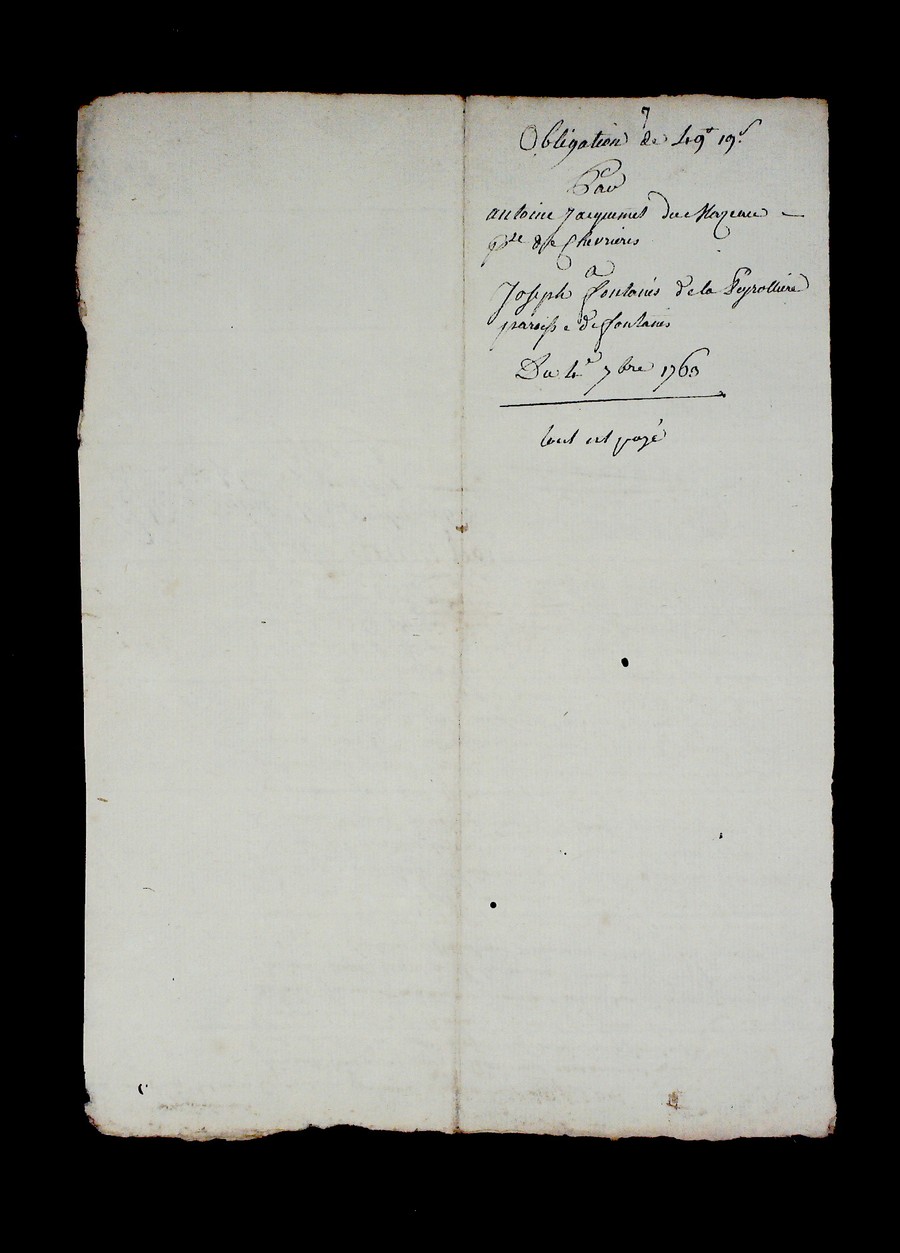 7
Obligation de 49# 19s
Par
antoine Jacquemet du Mazeau —
psse de Chevrieres
a
Joseph fontanés de la Peyrolliere
paroisse de fontanes
Du 4e 7bre 1763
tout est payé